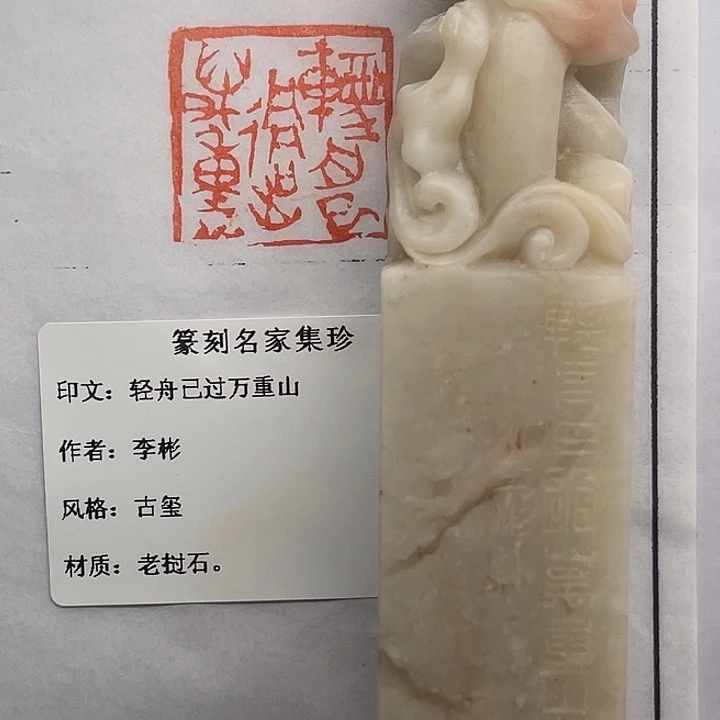 轻舟已过万重山
篆刻名家集珍
印文：轻舟已过万重山
作者：李彬
风格：古玺
材质：老挝石。